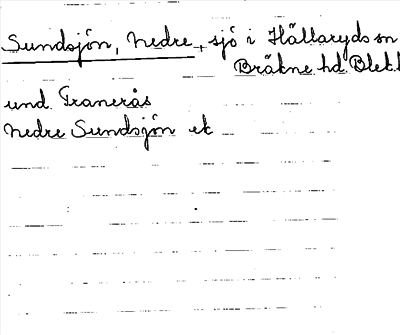 Sundsjön, Nedre, sjö i Hällaryds sn
Bräkne hd Blek.
und Tranerås
Nedre Sundsjön ek